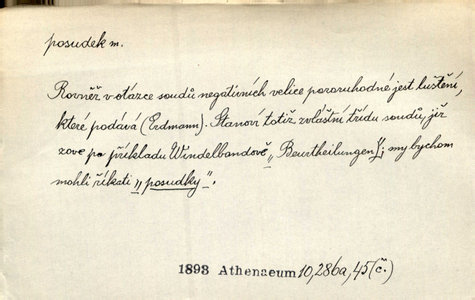 posudek m.
Rovněž v otázce soudů negativních velice pozoruhodné jest luštění,
které podává (Erdmann). Stanoví totiž zvláštní třídu soudů, již
zove po příkladu Windelbandově „Beurtheilungen“; my bychom
mohli říkati „posudky“.
1893 Athenaeum 10, 286a, 45 (č.)